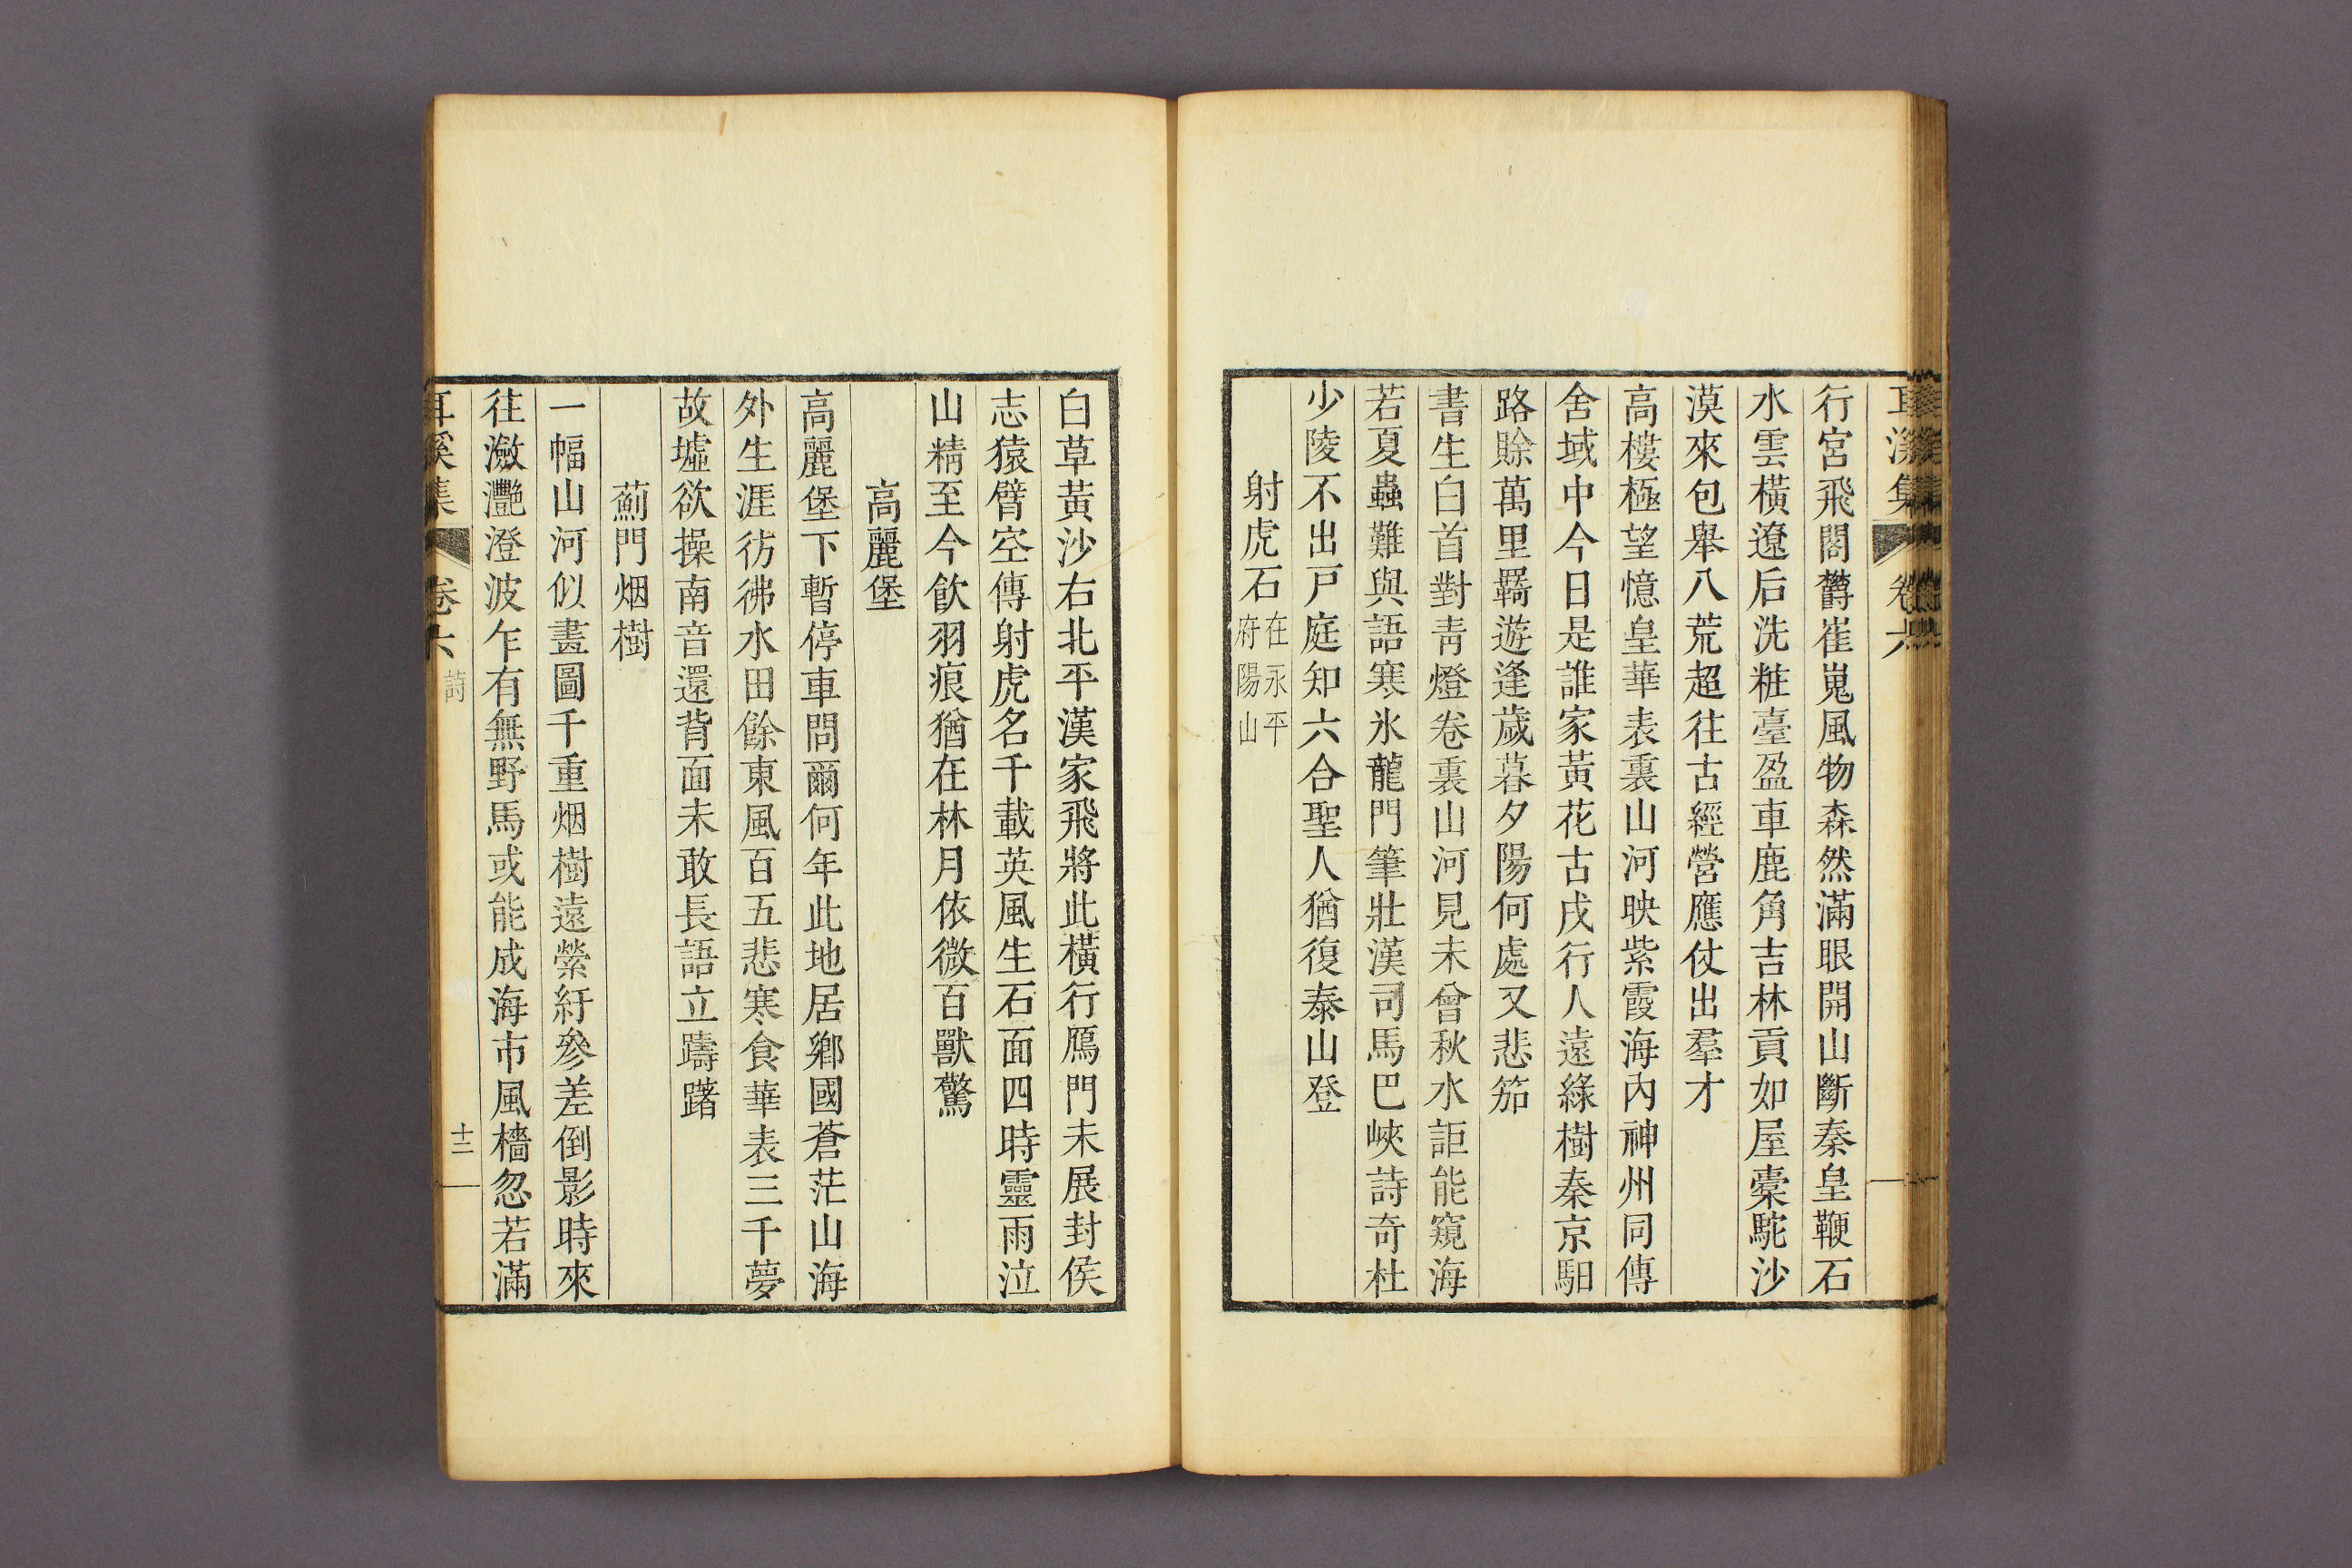 耳溪集 卷六
行宮飛閣欝崔嵬風物森然滿眼開山斷秦皇鞭石
水雲橫遼后洗粧臺盈車鹿角吉林貢如屋槖駝沙
漠來包舉八荒超往古經營應仗出羣才
高樓極望憶皇華表裏山河映紫霞海內神州同傳
舍域中今日是誰家黃花古戍行人遠綠樹秦京馹
路賖萬里羇遊逢歲暮夕陽何處又悲笳
書生白首對靑燈卷裏山河見未曾秋水詎能窺海
若夏蟲難與語寒氷龍門筆壯漢司馬巴峽詩奇杜
少陵不出戶庭知六合聖人猶復泰山登
射虎石在永平
府陽山
白草黃沙右北平漢家飛將此橫行鴈門未展封侯
志猿臂空傳射虎名千載英風生石面四時靈雨泣
山精至今飮羽痕猶在林月依微百獸驚
高麗堡
高麗堡下暫停車問爾何年此地居鄕國蒼茫山海
外生涯彷彿水田餘東風百五悲寒食華表三千夢
故墟欲操南音還背面未敢長語立躊躇
薊門烟樹
一幅山河似畫圖千重烟樹遠縈紆參差倒影時來
往瀲灎澄波乍有無野馬或能成海市風檣忽若滿
耳溪集 卷六 詩 十二